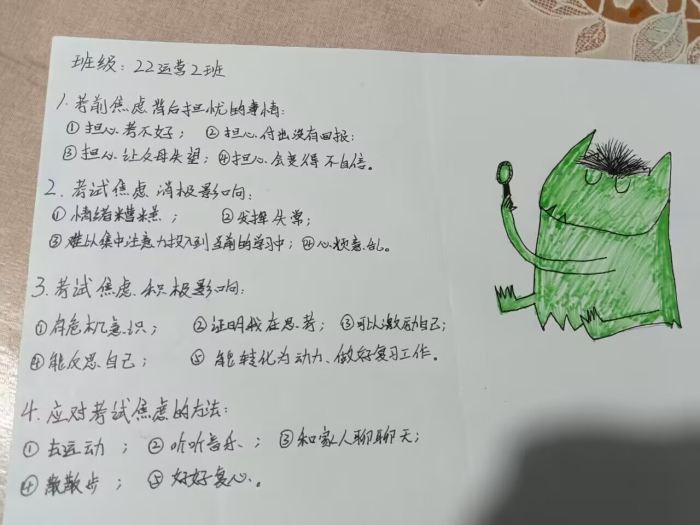 班级：22运营2班
1.考前焦虑背后担忧的事情：
①担心考不好；②担心付出没有回报；
③担心让父母失望；④担心会变得不自信。
2.考试焦虑消极影响：
①情绪糟糕；②发挥失常；
③难以集中注意力投入到当前的学习中；④心烦意乱。
3.考试焦虑积极影响：
①有危机意识；②证明我在思考；③可以激励自己；
④能反思自己；⑤能转化为动力、做好复习工作。
4.应对考试焦虑的方法：
①去运动；②听听音乐、；③和家人聊聊天；
④散散步；⑤好好复心。